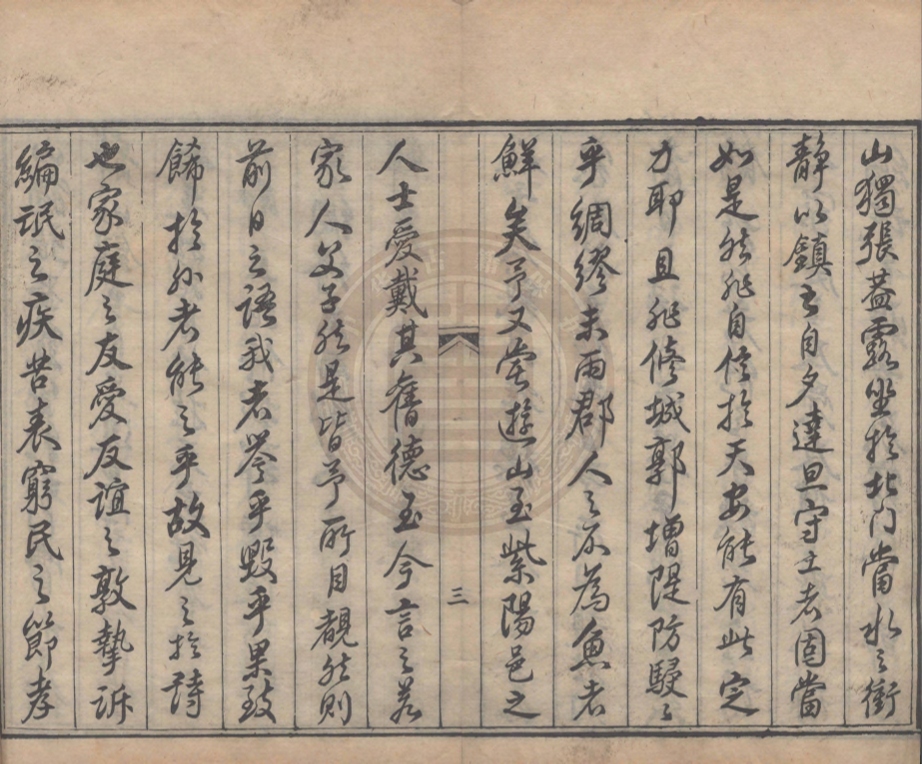 山獨張蓋露坐於北门當水之衝
靜以鎮之自夕達旦守土者固當
如是然非自信於天安能有此定
力耶且非修城郭增隄防駸〻
乎綢繆未雨郡人之不為魚者
鮮矣予又嘗遊山至紫陽邑之
三
人士愛戴其舊德至今言之若
家人父子然是皆予所目覩然則
前日之語我者譽乎毀乎果致
餙於外者能之乎故見之於詩
也家庭之友愛友誼之敦摯訴
編氓之疾苦表窮民之節孝